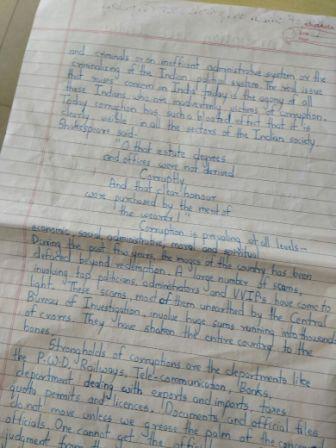 and criminals or an inefficient administrative system or the
criminalizing of the Indian political system. The real issue
that raises concern in India today is the agony of all
these Indians who are inadvertently victims of corruption.
Today corruption has such a bloated effect that it is
clearly visible in all the sectors of the Indian society
Shakespeare said-
"O that estate degrees
and offices were not derived
Corruptly,
And that clear honour
were purchased by the merit of
the wearer!"
Corruption is prevailing at all levels-
economic, social administrative, moral and spiritual
During the past few years, the images of the country has been
defaced beyond redemption. A large number of scams,
involving top politicians, administrators and VVIPs have come to
light. These scams, most of them unearthed by the Central
Bureau of Investigation, involve huge sums running into thousands
of crores. They have shaken the entire country to the
bones.
Strongholds of corruptions are the departments like
the P.W.D, Railways, Tele-communication, Banks,
department dealing with exports and imports, taxes
quota permits and licences. Documents and official files
do not move unless we grease the palms of the
officials. One cannot get the
judgment from the